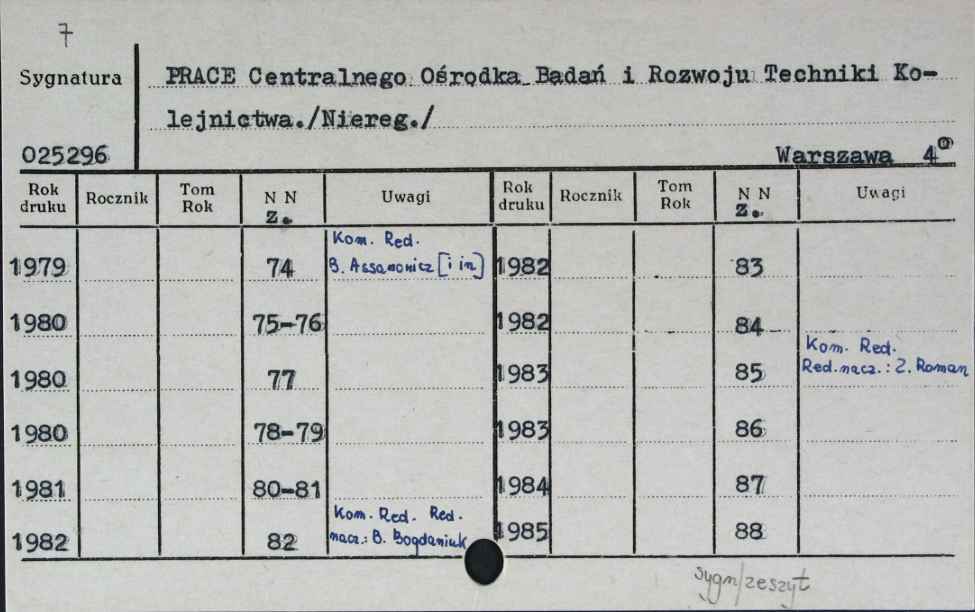 7
Sygnatura
PRACE Centralnego Ośrodka Badań i Rozwoju Techniki Ko-
lejnictwa./Niereg./
025296
Warszawa 4°
Rok druku Rocznik Tom Rok N N Z. Uwagi Rok druku Rocznik Tom Rok N N Z. Uwagi
1979 74 Kom. Red. B. Assanowicz [i in] 1982 83
1980 75-76 1982 84
1980 77 1983 85 Kom. Red. Red. nacz.: Z. Roman
1980 78-79 1983 86
1981 80-81 1984 87
1982 82 Kom. Red. Red. nacz.: B. Bogdaniuk 1985 88
sygn/zeszyt